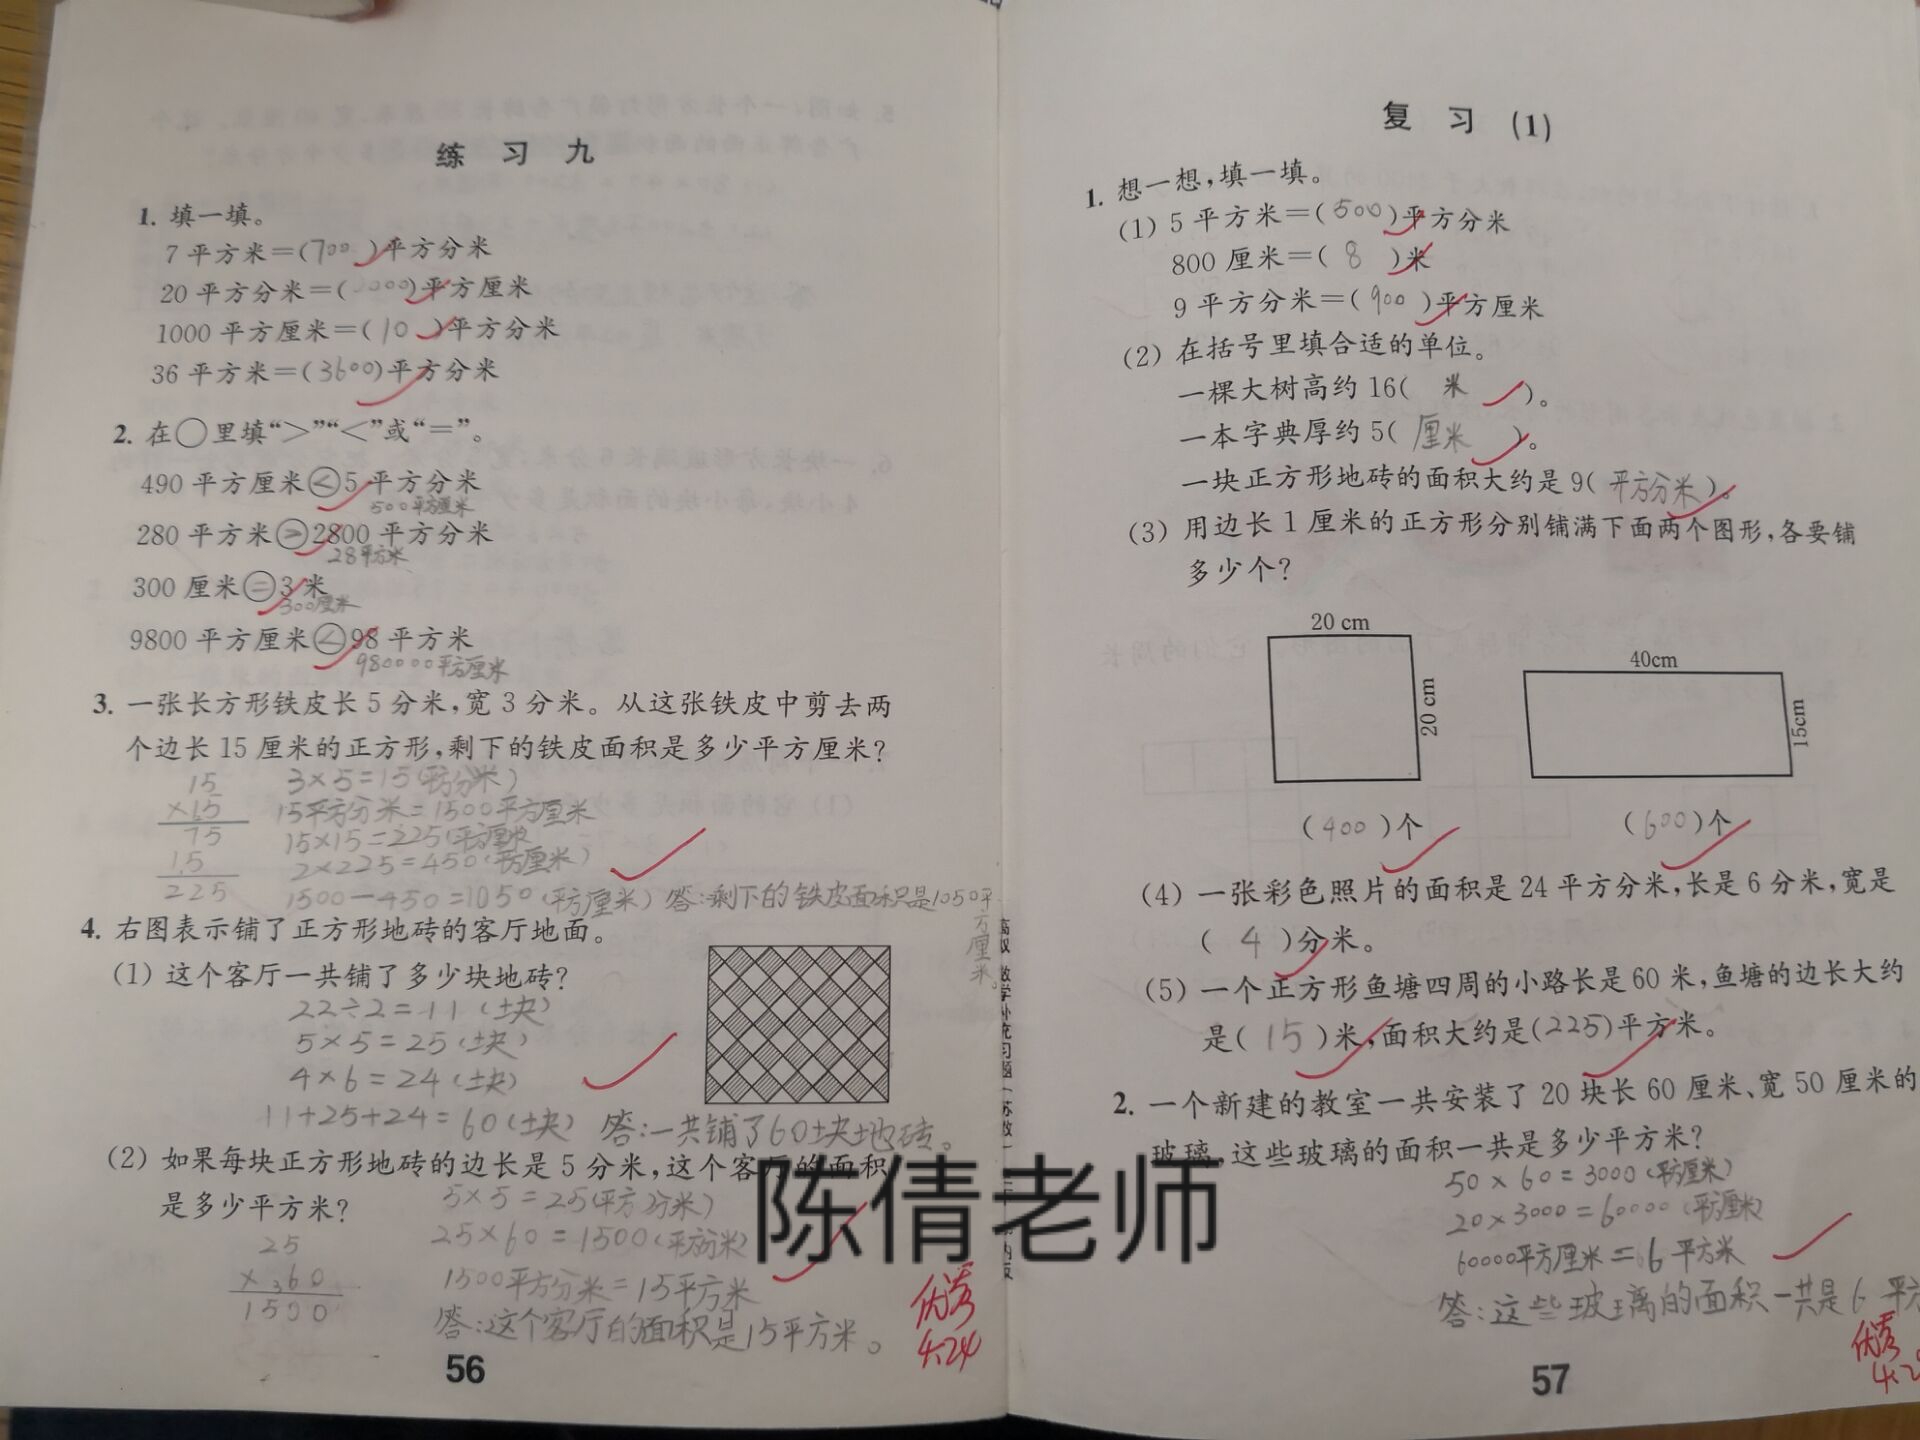 练习九
1. 填一填。
7平方米=(700)平方分米
20平方分米=(2000)平方厘米
1000平方厘米=(10)平方分米
36平方米=(3600)平方分米
2. 在○里填“>”“<”或“=”。
490平方厘米<5平方分米
500平方厘米
280平方米>2800平方分米
28平方米
300厘米=3米
300厘米
9800平方厘米<98平方米
980000平方厘米
3. 一张长方形铁皮长5分米,宽3分米。从这张铁皮中剪去两
个边长15厘米的正方形,剩下的铁皮面积是多少平方厘米?
15
×15
75
15
225
3×5=15(平方分米)
15平方分米=1500平方厘米
15×15=225(平方厘米)
2×225=450(平方厘米)
1500-450=1050(平方厘米) 答:剩下的铁皮面积是1050平
方厘米。
4. 右图表示铺了正方形地砖的客厅地面。
(1) 这个客厅一共铺了多少块地砖?
22÷2=11(块)
5×5=25(块)
4×6=24(块)
11+25+24=60(块) 答:一共铺了60块地砖。
(2) 如果每块正方形地砖的边长是5分米,这个客厅的面积
是多少平方米?
5×5=25(平方分米)
25×60=1500(平方分米)
1500平方分米=15平方米
答:这个客厅的面积是15平方米。
25
×60
1500
优秀
4.24
56
陈倩老师
复习(1)
1. 想一想,填一填。
(1) 5平方米=(500)平方分米
800厘米=(8)米
9平方分米=(900)平方厘米
(2) 在括号里填合适的单位。
一棵大树高约16(米)。
一本字典厚约5(厘米)。
一块正方形地砖的面积大约是9(平方分米)。
(3) 用边长1厘米的正方形分别铺满下面两个图形,各要铺
多少个?
20 cm
20 cm
40cm
15cm
(400)个
(600)个
(4) 一张彩色照片的面积是24平方分米,长是6分米,宽是
(4)分米。
(5) 一个正方形鱼塘四周的小路长是60米,鱼塘的边长大约
是(15)米,面积大约是(225)平方米。
2. 一个新建的教室一共安装了20块长60厘米、宽50厘米的
玻璃,这些玻璃的面积一共是多少平方米?
50×60=3000(平方厘米)
20×3000=60000(平方厘米)
60000平方厘米=6平方米
答:这些玻璃的面积一共是6平方
优秀
57